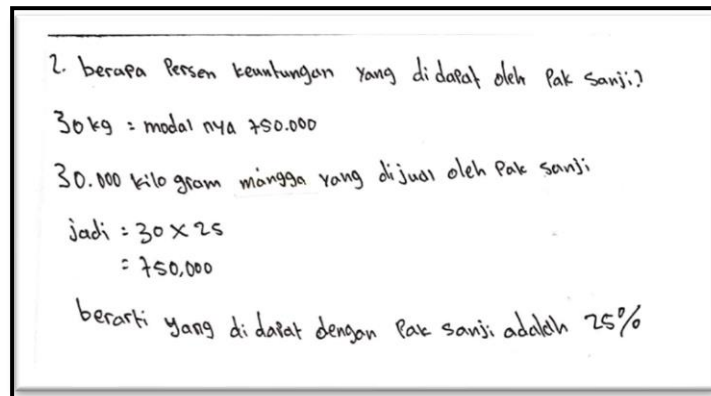 2. berapa Persen keuntungan yang di dapat oleh Pak Sanji?
30 kg = modal nya 750.000
30.000 kilo gram mangga yang dijual oleh Pak Sanji
jadi = 30 x 25
= 750,000
berarti yang di dapat dengan Pak Sanji adalah 25%